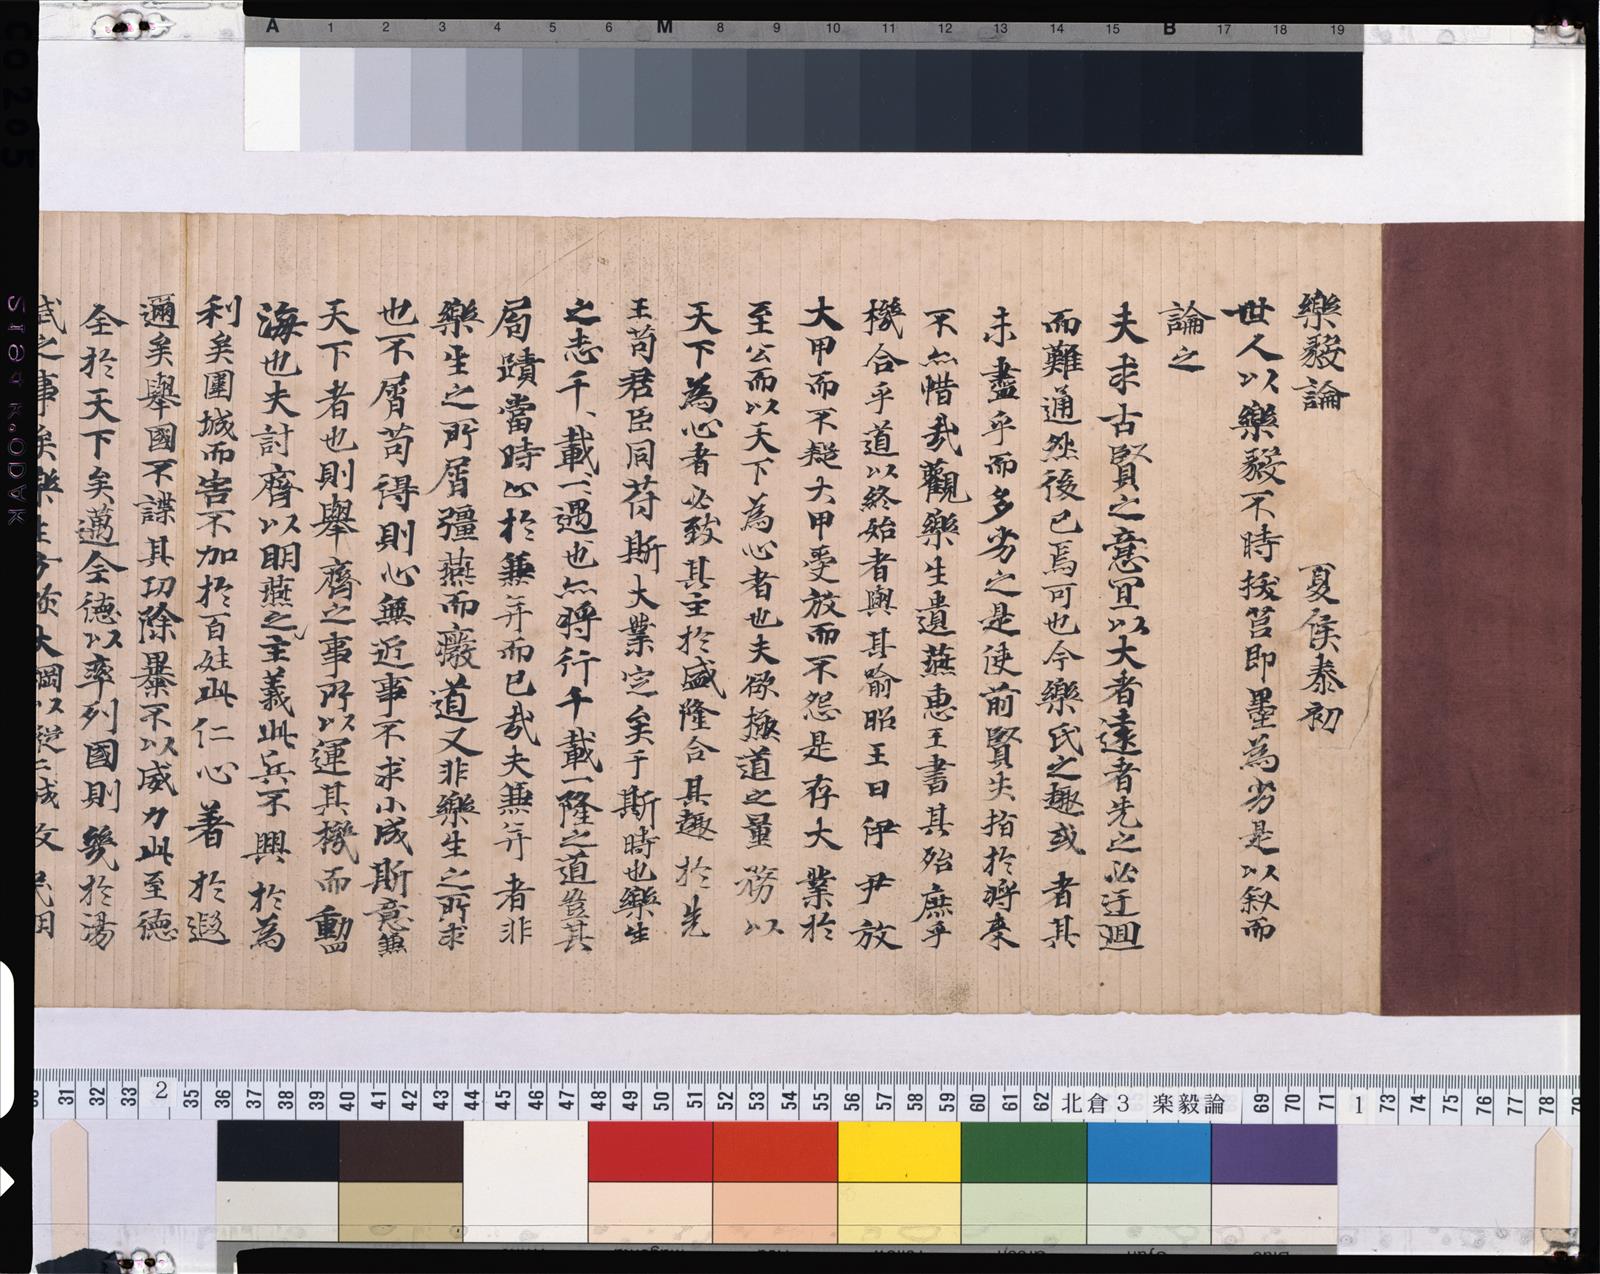 樂毅論 夏侯泰初
世人以樂毅不時拔莒即墨為劣是以叙而
論之
夫求古賢之意冝以大者遠者先之必迂迴
而難通然後已焉可也今樂氏之趣或者其
未盡乎而多劣之是使前賢失指於將來
不亦惜哉觀樂生遺燕惠王書其殆庶乎
機合乎道以終始者與其喻昭王曰伊尹放
大甲而不疑大甲受放而不怨是存大業於
至公而以天下為心者也夫欲極道之量務以
天下為心者必致其主於盛隆合其趣於先
王苟君臣同苻斯大業定矣于斯時也樂生
之志千載一遇也亦將行千載一隆之道豈其
局蹟當時止於兼并而已哉夫兼并者非
樂生之所屑彊燕而廢道又非樂生之所求
也不屑苟得則心無近事不求小成斯意兼
天下者也則舉齊之事所以運其機而動四
海也夫討齊以明燕之主義此兵不興於為
利矣圍城而害不加於百姓此仁心著於遐
邇矣舉國不謀其功除暴不以威力此至德
全於天下矣邁全德以率列國則幾於湯
武之事矣樂生方恢大綱以縱二城
A 1 2 3 4 5 6 M 8 9 10 11 12 13 14 15 B 17 18 19
31 32 33 2 35 36 37 38 39 40 41 42 43 44 45 46 47 48 49 50 51 52 53 54 55 56 57 58 59 60 61 62 北倉3 楽毅論 69 70 71 1 73 74 75 76 77 78 79